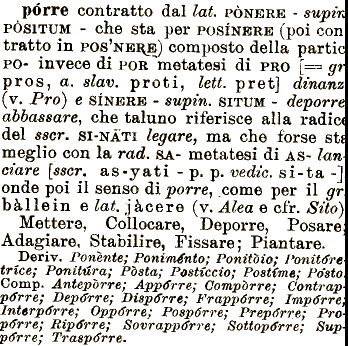 pórre contratto dal lat. PÒNERE - supin
PÒSITUM - che sta per POSÍNERE (poi con
tratto in POS'NERE) composto della partic
PO- invece di POR metatesi di PRO [= gr
pros, a. slav. proti, lett. pret] dinanz
(v. Pro) e SÍNERE - supin. SITUM - deporre
abbassare, che taluno riferisce alla radice
del sscr. SI-NÂTI legare, ma che forse sta
meglio con la rad. SA- metatesi di AS- lan-
ciare [sscr. as-yati - p. p. vedic. si-ta -]
onde poi il senso di porre, come per il gr
bàllein e lat. jàcere (v. Alea e cfr. Sito)
Mettere, Collocare, Deporre, Posare
Adagiare, Stabilire, Fissare; Piantare.
Deriv. Ponènte; Poniménto; Ponitòio; Ponitóre-
trìce; Ponitúra; Pòsta; Postíccio; Postíme; Pósto.
Comp. Antepòrre; Appórre; Compòrre; Contrap-
pórre; Depórre; Dispórre; Frappórre; Impórre;
Interpórre; Oppórre; Pospórre; Prepórre; Pro-
pórre; Ripórre; Sovrappórre; Sottopórre; Sup-
pórre; Traspórre.